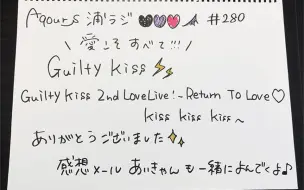 Aqours 浦ラジ 🖤💜🩷 #280
\ 愛こそすべて!!! /
Guilty Kiss⚡⚡
Guilty Kiss 2nd LoveLive! ~Return To Love♡
Kiss Kiss Kiss~
ありがとうございました✨
感想メール あいきゃんも一緒によんでくよ♪